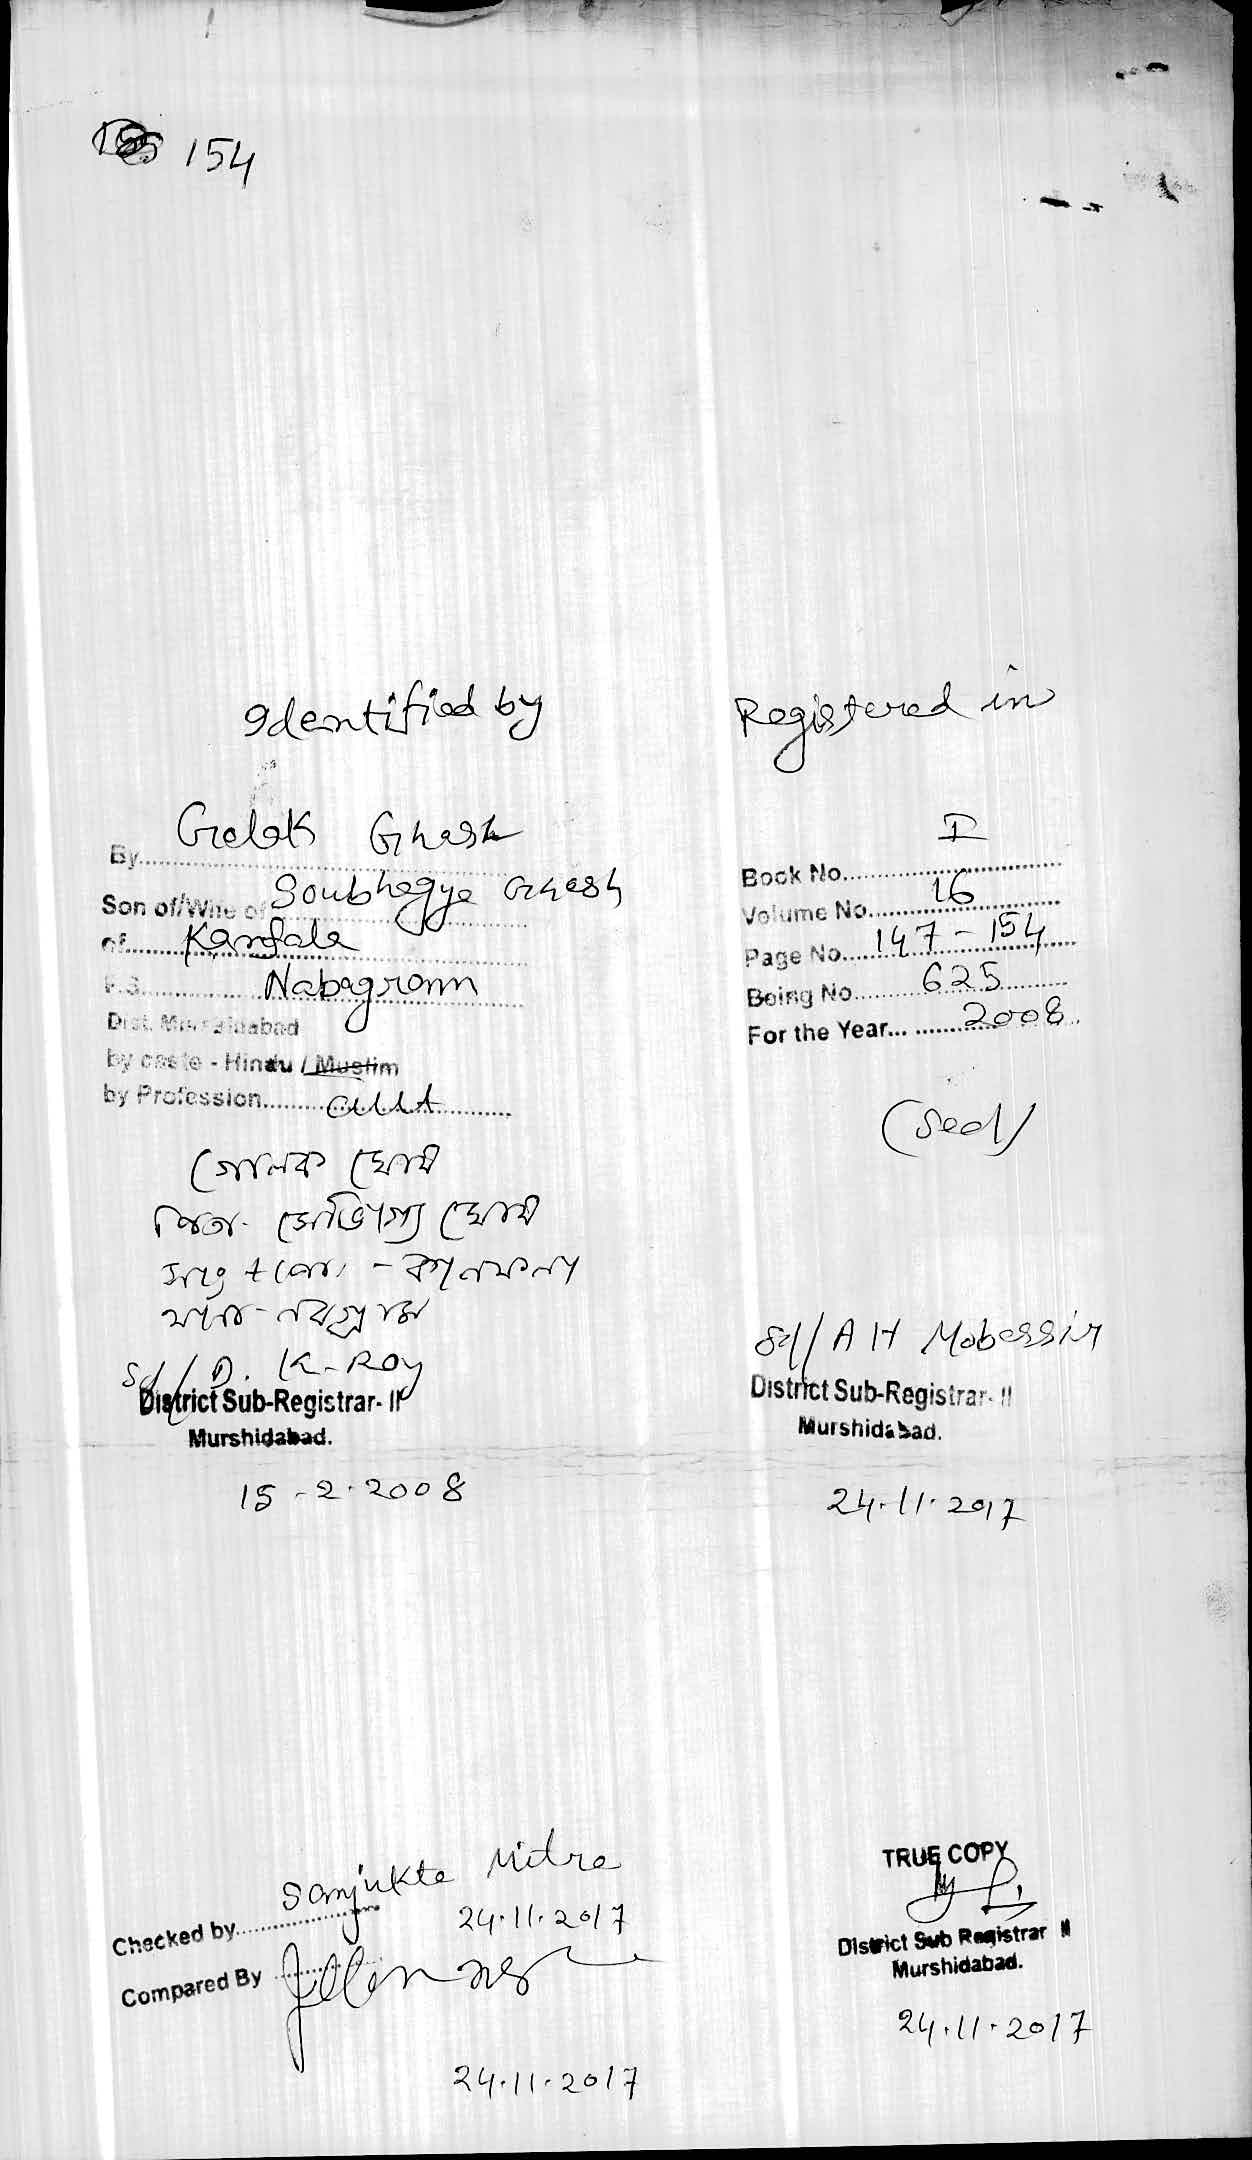 154
Identified by
By Golok Ghosh
Son of/Wife of Soubhagya Ghosh
of Kanfala
P.S. Nabagram
Dist. Murshidabad
by caste - Hindu / Muslim
by Profession
গোলক ঘোষ
পিতা- সৌভাগ্য ঘোষ
সাং + পোঃ - কানফলা
থানা- নবগ্রাম
Sd/ D. K. Roy
District Sub-Registrar- II
Murshidabad.
15-2-2008
Registered in
Book No. I
Volume No. 16
Page No. 147 - 154
Being No. 625
For the Year... 2008
(Seal)
Sd/ A H Mobassir
District Sub-Registrar- II
Murshidabad.
24.11.2017
Checked by Sanjukta Mitra
24.11.2017
Compared By
24.11.2017
TRUE COPY
District Sub Registrar II
Murshidabad.
24.11.2017